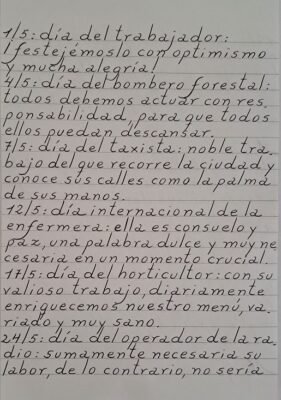 1/5: día del trabajador:
¡festejémoslo con optimismo
y mucha alegría!
4/5: día del bombero forestal:
todos debemos actuar con res,
ponsabilidad, para que todos
ellos puedan descansar.
7/5: día del taxista: noble tra,
bajo del que recorre la ciudad y
conoce sus calles como la palma
de sus manos.
12/5: día internacional de la
enfermera: ella es consuelo y
paz, una palabra dulce y muy ne
cesaria en un momento crucial.
17/5: día del horticultor: con su
valioso trabajo, diariamente
enriquecemos nuestro menú, va,
riado y muy sano.
24/5: día del operador de la ra,
dio: sumamente necesaria su
labor, de lo contrario, no sería